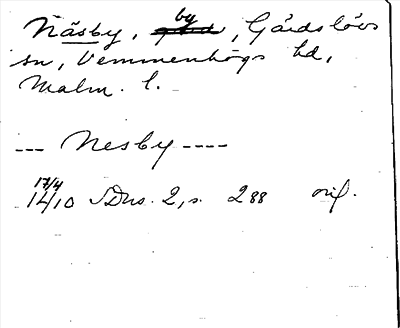 Näsby, by, Gärdslövs
sn, Vemmenhögs hd,
Malm. l.
--- Nesby ----
17/4
1410 SDns. 2, s. 288 orig.